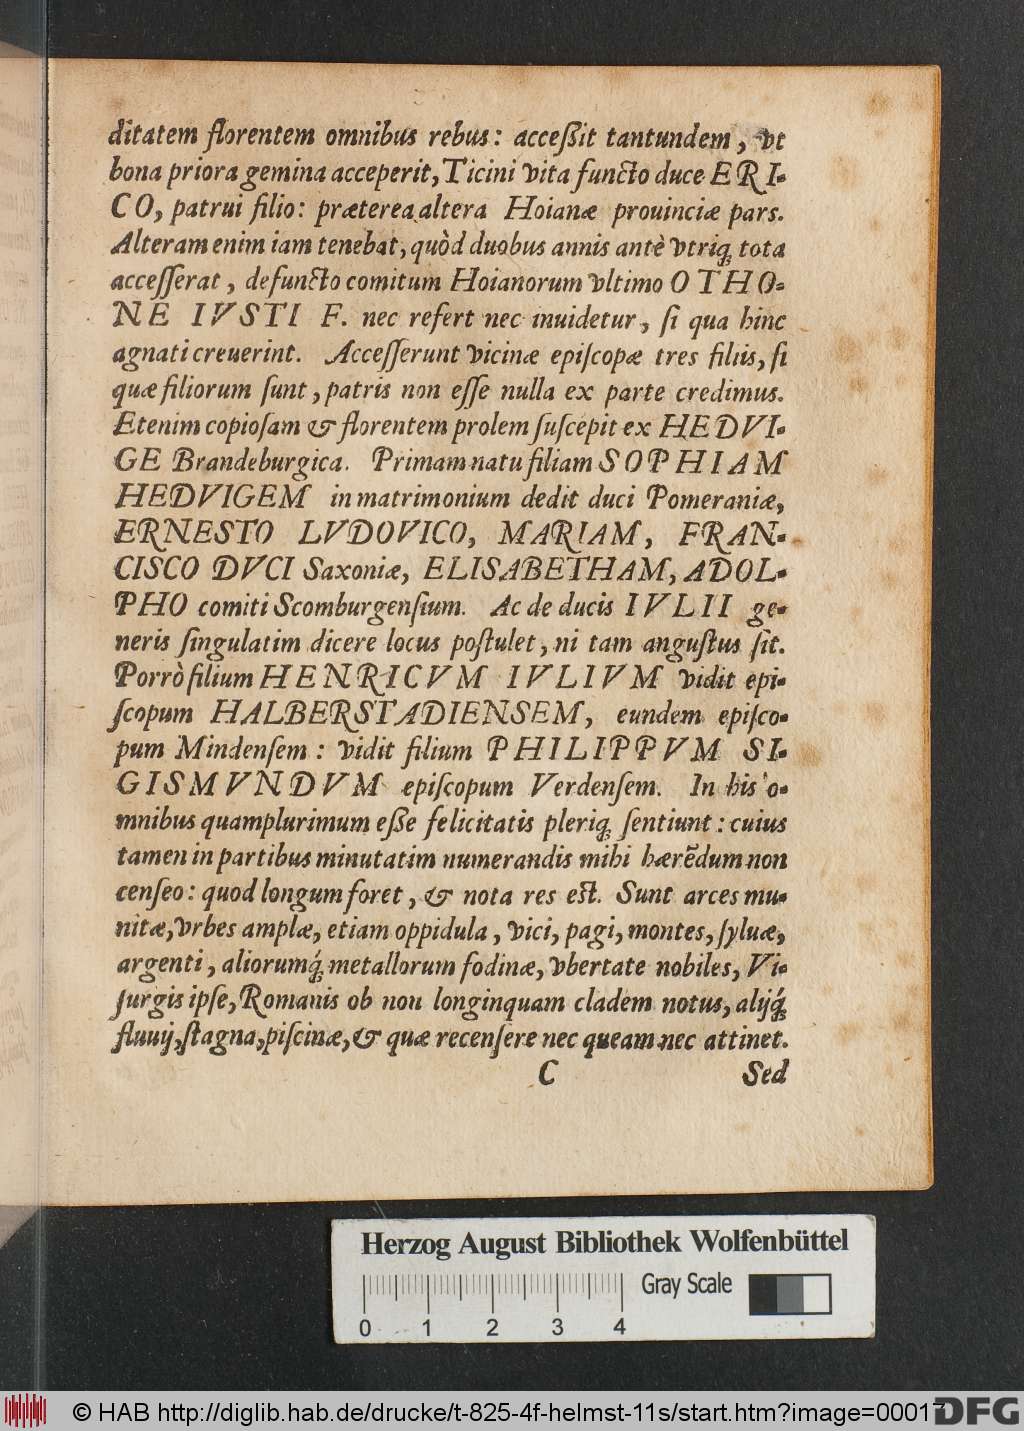 ditatem florentem omnibus rebus: acceßit tantundem, vt
bona priora gemina acceperit, Ticini vita functo duce ERI-
CO, patrui filio: præterea altera Hoianæ prouinciæ pars.
Alteram enim iam tenebat, quòd duobus annis antè vtriq́ꝫ tota
accesserat, defuncto comitum Hoianorum vltimo OTHO-
NE IVSTI F. nec refert nec inuidetur, si qua hinc
agnati creuerint. Accesserunt vicinæ episcopæ tres filiis, si
quæ filiorum sunt, patris non esse nulla ex parte credimus.
Etenim copiosam & florentem prolem suscepit ex HEDVI-
GE Brandeburgica. Primam natu filiam SOPHIAM
HEDVIGEM in matrimonium dedit duci Pomeraniæ,
ERNESTO LVDOVICO, MARIAM, FRAN-
CISCO DVCI Saxoniæ, ELISABETHAM, ADOL-
PHO comiti Scomburgensium. Ac de ducis IVLII ge-
neris singulatim dicere locus postulet, ni tam angustus sit.
Porrò filium HENRICVM IVLIVM vidit epi-
scopum HALBERSTADIENSEM, eundem episco-
pum Mindensem: vidit filium PHILIPPVM SI-
GISMVNDVM episcopum Verdensem. In his o-
mnibus quamplurimum eße felicitatis pleriqꝫ sentiunt: cuius
tamen in partibus minutatim numerandis mihi hærẽdum non
censeo: quod longum foret, & nota res est. Sunt arces mu-
nitæ, vrbes amplæ, etiam oppidula, vici, pagi, montes, syluæ,
argenti, aliorumq́ꝫ metallorum fodinæ, vbertate nobiles, Vi-
surgis ipse, Romanis ob non longinquam cladem notus, alijq́ꝫ
fluuij, stagna, piscinæ, & quæ recensere nec queam nec attinet.
C Sed
Herzog August Bibliothek Wolfenbüttel
Gray Scale
0 1 2 3 4
© HAB http://diglib.hab.de/drucke/t-825-4f-helmst-11s/start.htm?image=00017
DFG